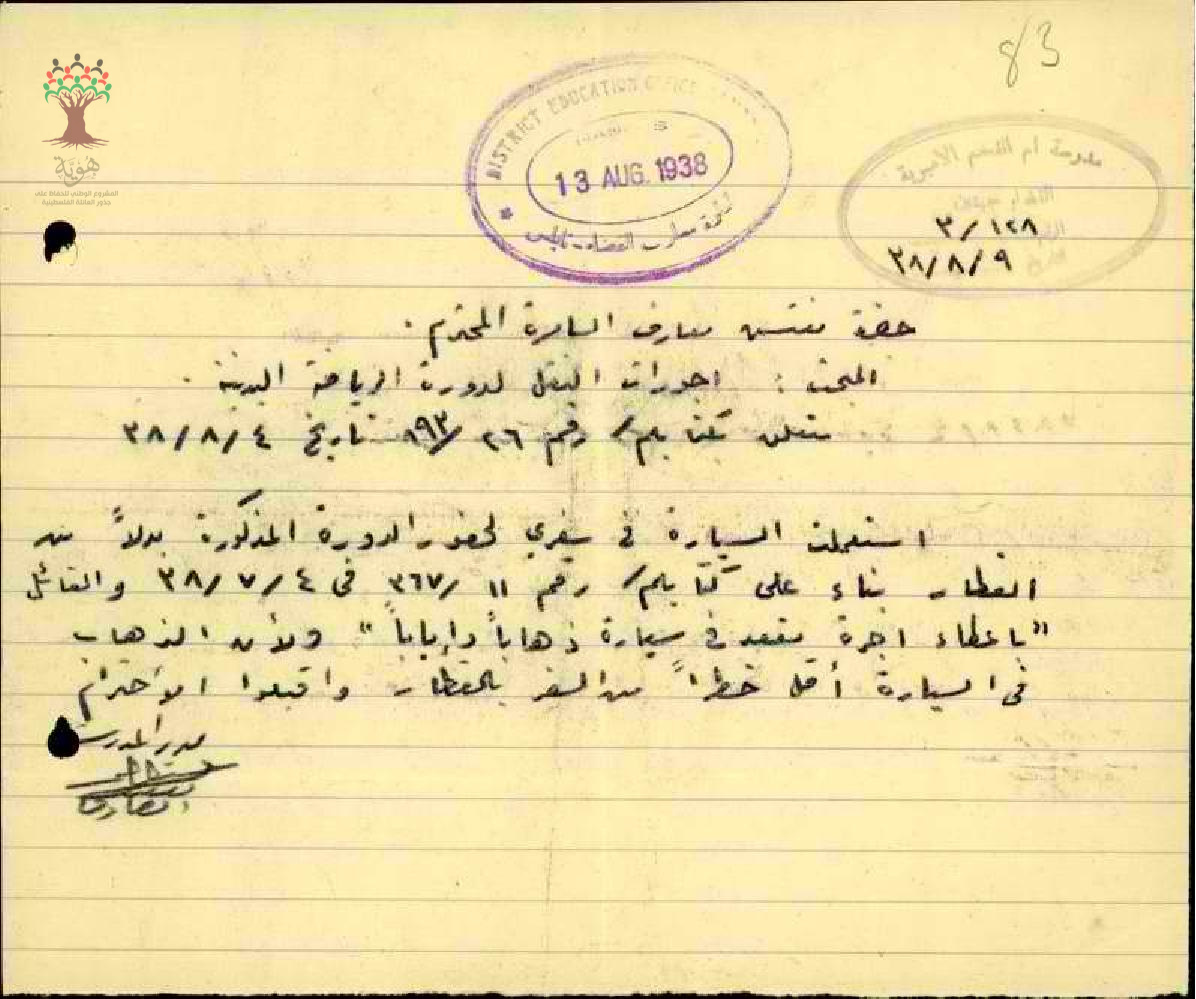 83
هُوِيَّة
المشروع الوطني للحفاظ على
جذور العائلة الفلسطينية
DISTRICT EDUCATION OFFICE
13 AUG. 1938
معارف القضاء نابلس
مدرسة ام الفحم الأميرية
٣/١٢٨
٣٨/٨/٩
حضرة مفتش معارف السامرة المحترم .
المبحث : اجورات النقل لدورة الرياضة البدنية .
متعلق كتابكم رقم ٢٦/٨٩٣ تاريخ ٣٨/٨/٤
استعملت السيارة في سفري لحضور الدورة المذكورة بدلاً من
القطار بناء على كتابكم رقم ١١/٣٦٧ في ٣٨/٧/٤ والقائل
"باعطاء اجرة مقعد في سيارة ذهاباً وإياباً" ولأن الذهاب
في السيارة أقل خطراً من السفر بالقطار واقبلوا الاحترام
مدير المدرسة